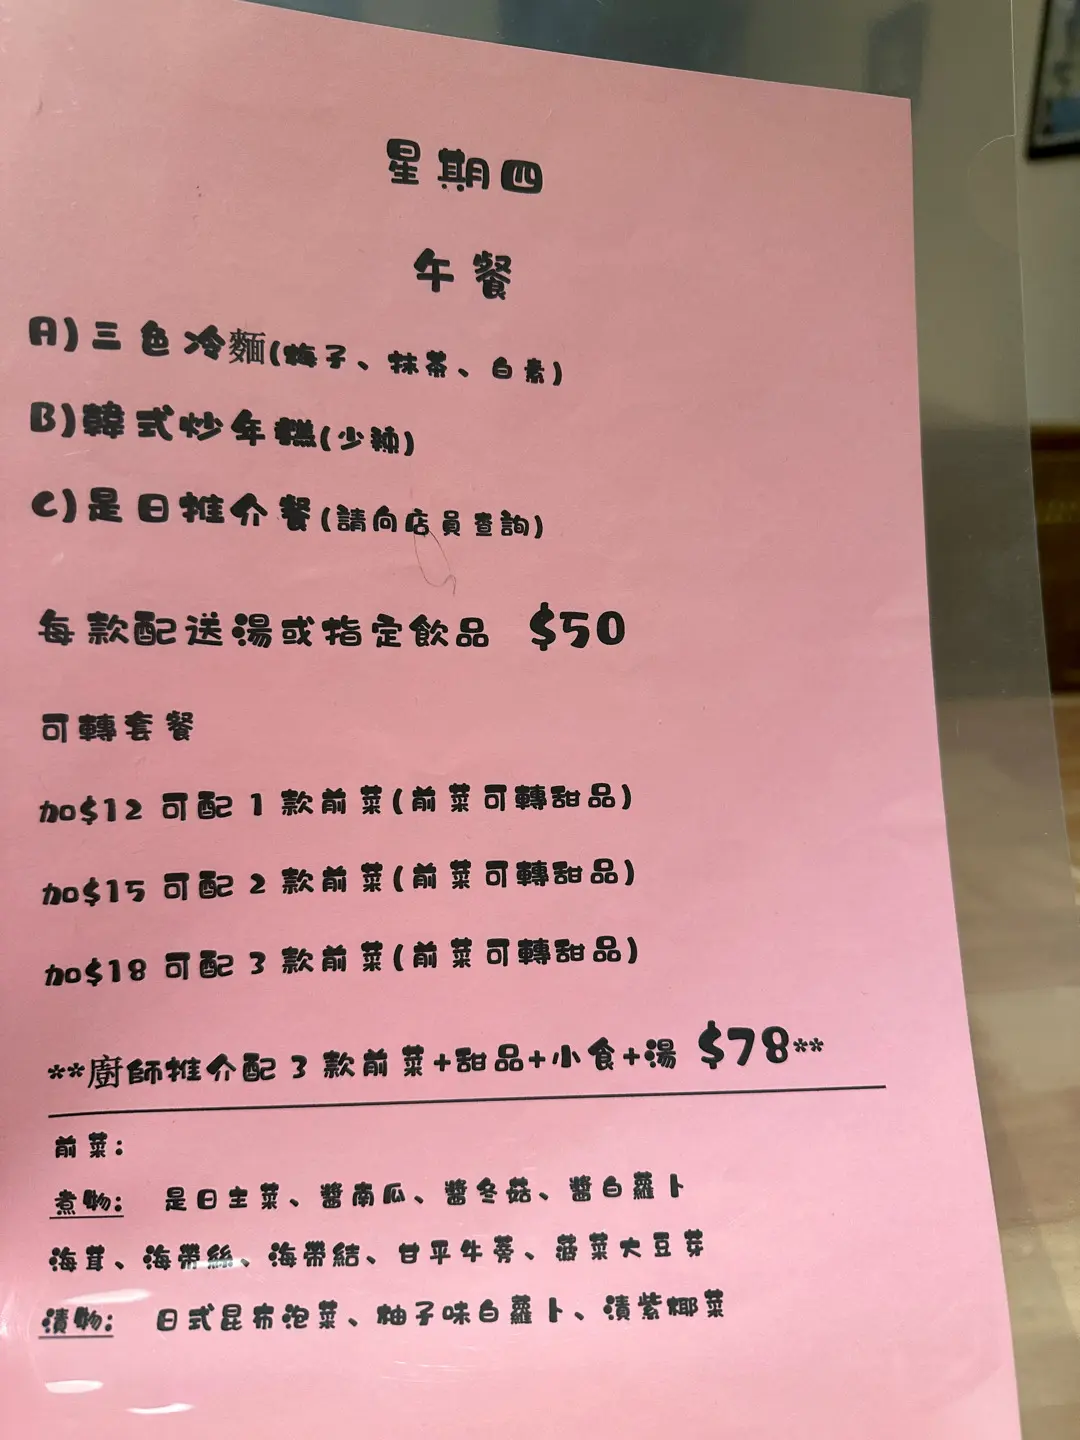 星期四
午餐
A)三色冷麵(梅子、抹茶、白素)
B)韓式炒年糕(少辣)
C)是日推介餐(請向店員查詢)
每款配送湯或指定飲品 $50
可轉套餐
加$12 可配 1 款前菜(前菜可轉甜品)
加$15 可配 2 款前菜(前菜可轉甜品)
加$18 可配 3 款前菜(前菜可轉甜品)
**廚師推介配 3 款前菜+甜品+小食+湯 $78**
前菜:
煮物: 是日主菜、醬南瓜、醬冬菇、醬白蘿卜
海茸、海帶絲、海帶結、甘平牛蒡、菠菜大豆芽
漬物: 日式昆布泡菜、柚子味白蘿卜、漬紫椰菜